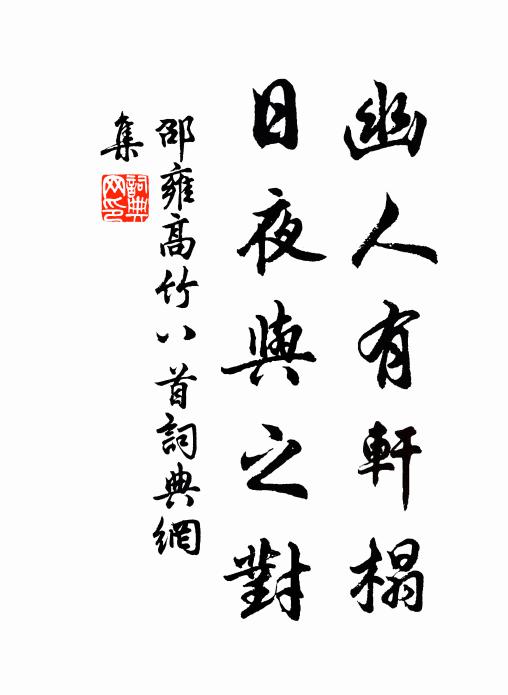 幽人有軒榻
日夜與之對
邵雍高竹八首詞典網
集
詞典
网印